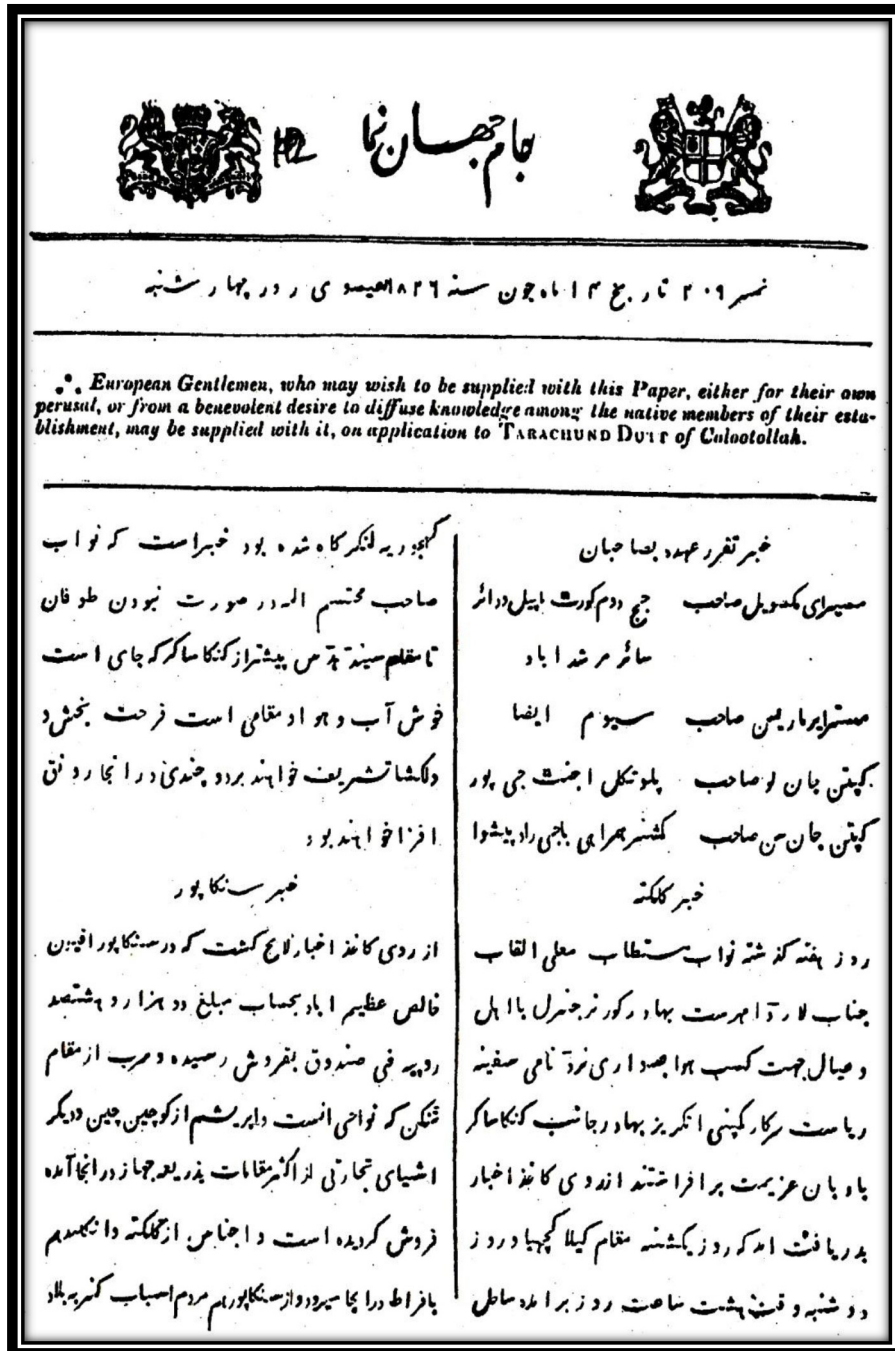 جام جهان نما
نمبر ۲۰۹ تاریخ ۱۴ ماه جون سنه ۱۸۲۶ عیسوی روز چهار شنبه
European Gentlemen, who may wish to be supplied with this Paper, either for their own
perusal, or from a benevolent desire to diffuse knowledge among the native members of their esta-
blishment, may be supplied with it, on application to TARACHUND DUTT of Colootollah.
خبر تقرر عهده بصاحبان
صاحب جج دوم کورت اپیل و دائر
سائر مرشداباد
صاحب سیوم ایضا
کپتن جان لو صاحب پلوتیکل اجنت جی پور
کپتن جان صاحب کمشنر همراهی باجی راو پیشوا
خبر کلکته
روز هفته گذشته نواب مستطاب معلی القاب
جناب لارد امهرست بهادر گورنر جنرل با اهل
و عیال جهت کسب هوا بسواری نامی سفینه
ریاست سرکار کمپنی انگریز بهادر جانب گنگا ساگر
بادبان عزیمت برافراشتند از روی کاغذ اخبار
بدریافت امد که روز یکشنبه مقام و روز
دو شنبه وقت هشت ساعت روز برامده ساحل
لنگرگاه شده بود خبر است که نواب
صاحب محتشم الیه در صورت نبودن طوفان
تا مقام پیشتر از گنگا ساگر که جای است
خوش آب و هوا و مقامی است فرحت بخش و
دلکشا تشریف خواهند برد و چندی در انجا رونق
افزا خواهند بود
خبر سنگاپور
از روی کاغذ اخبار لایح گشت که در سنگاپور افیون
خالص عظیم اباد بحساب مبلغ دو هزار و هشتصد
روپیه فی صندوق بفروش رسیده و سرب از مقام
که نواحی انست و ابریشم از کوچین چین و دیگر
اشیای تجارتی از اکثر مقامات بذریعه جهاز در انجا آمده
فروش گردیده است و اجناس از کلکته و انگلند هم
بافراط در انجا میرود و از سنگاپور هم مردم اسباب